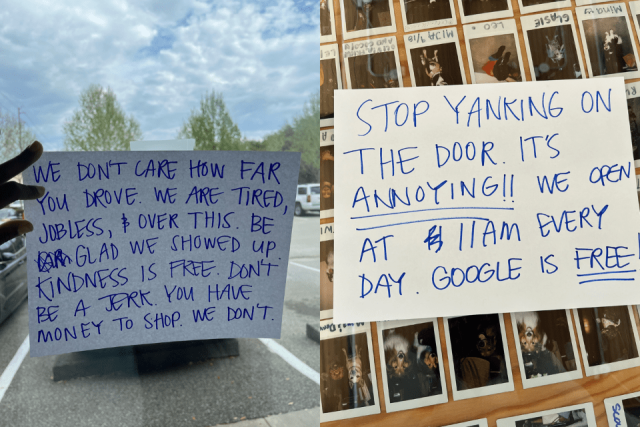 WE DON'T CARE HOW FAR
YOU DROVE. WE ARE TIRED,
JOBLESS, & OVER THIS. BE
GLAD WE SHOWED UP.
KINDNESS IS FREE. DON'T
BE A JERK. YOU HAVE
MONEY TO SHOP. WE DON'T.
STOP YANKING ON
THE DOOR. IT'S
ANNOYING!! WE OPEN
AT 11AM EVERY
DAY. GOOGLE IS FREE!
MIJA 9/18
LEO
GLASIE